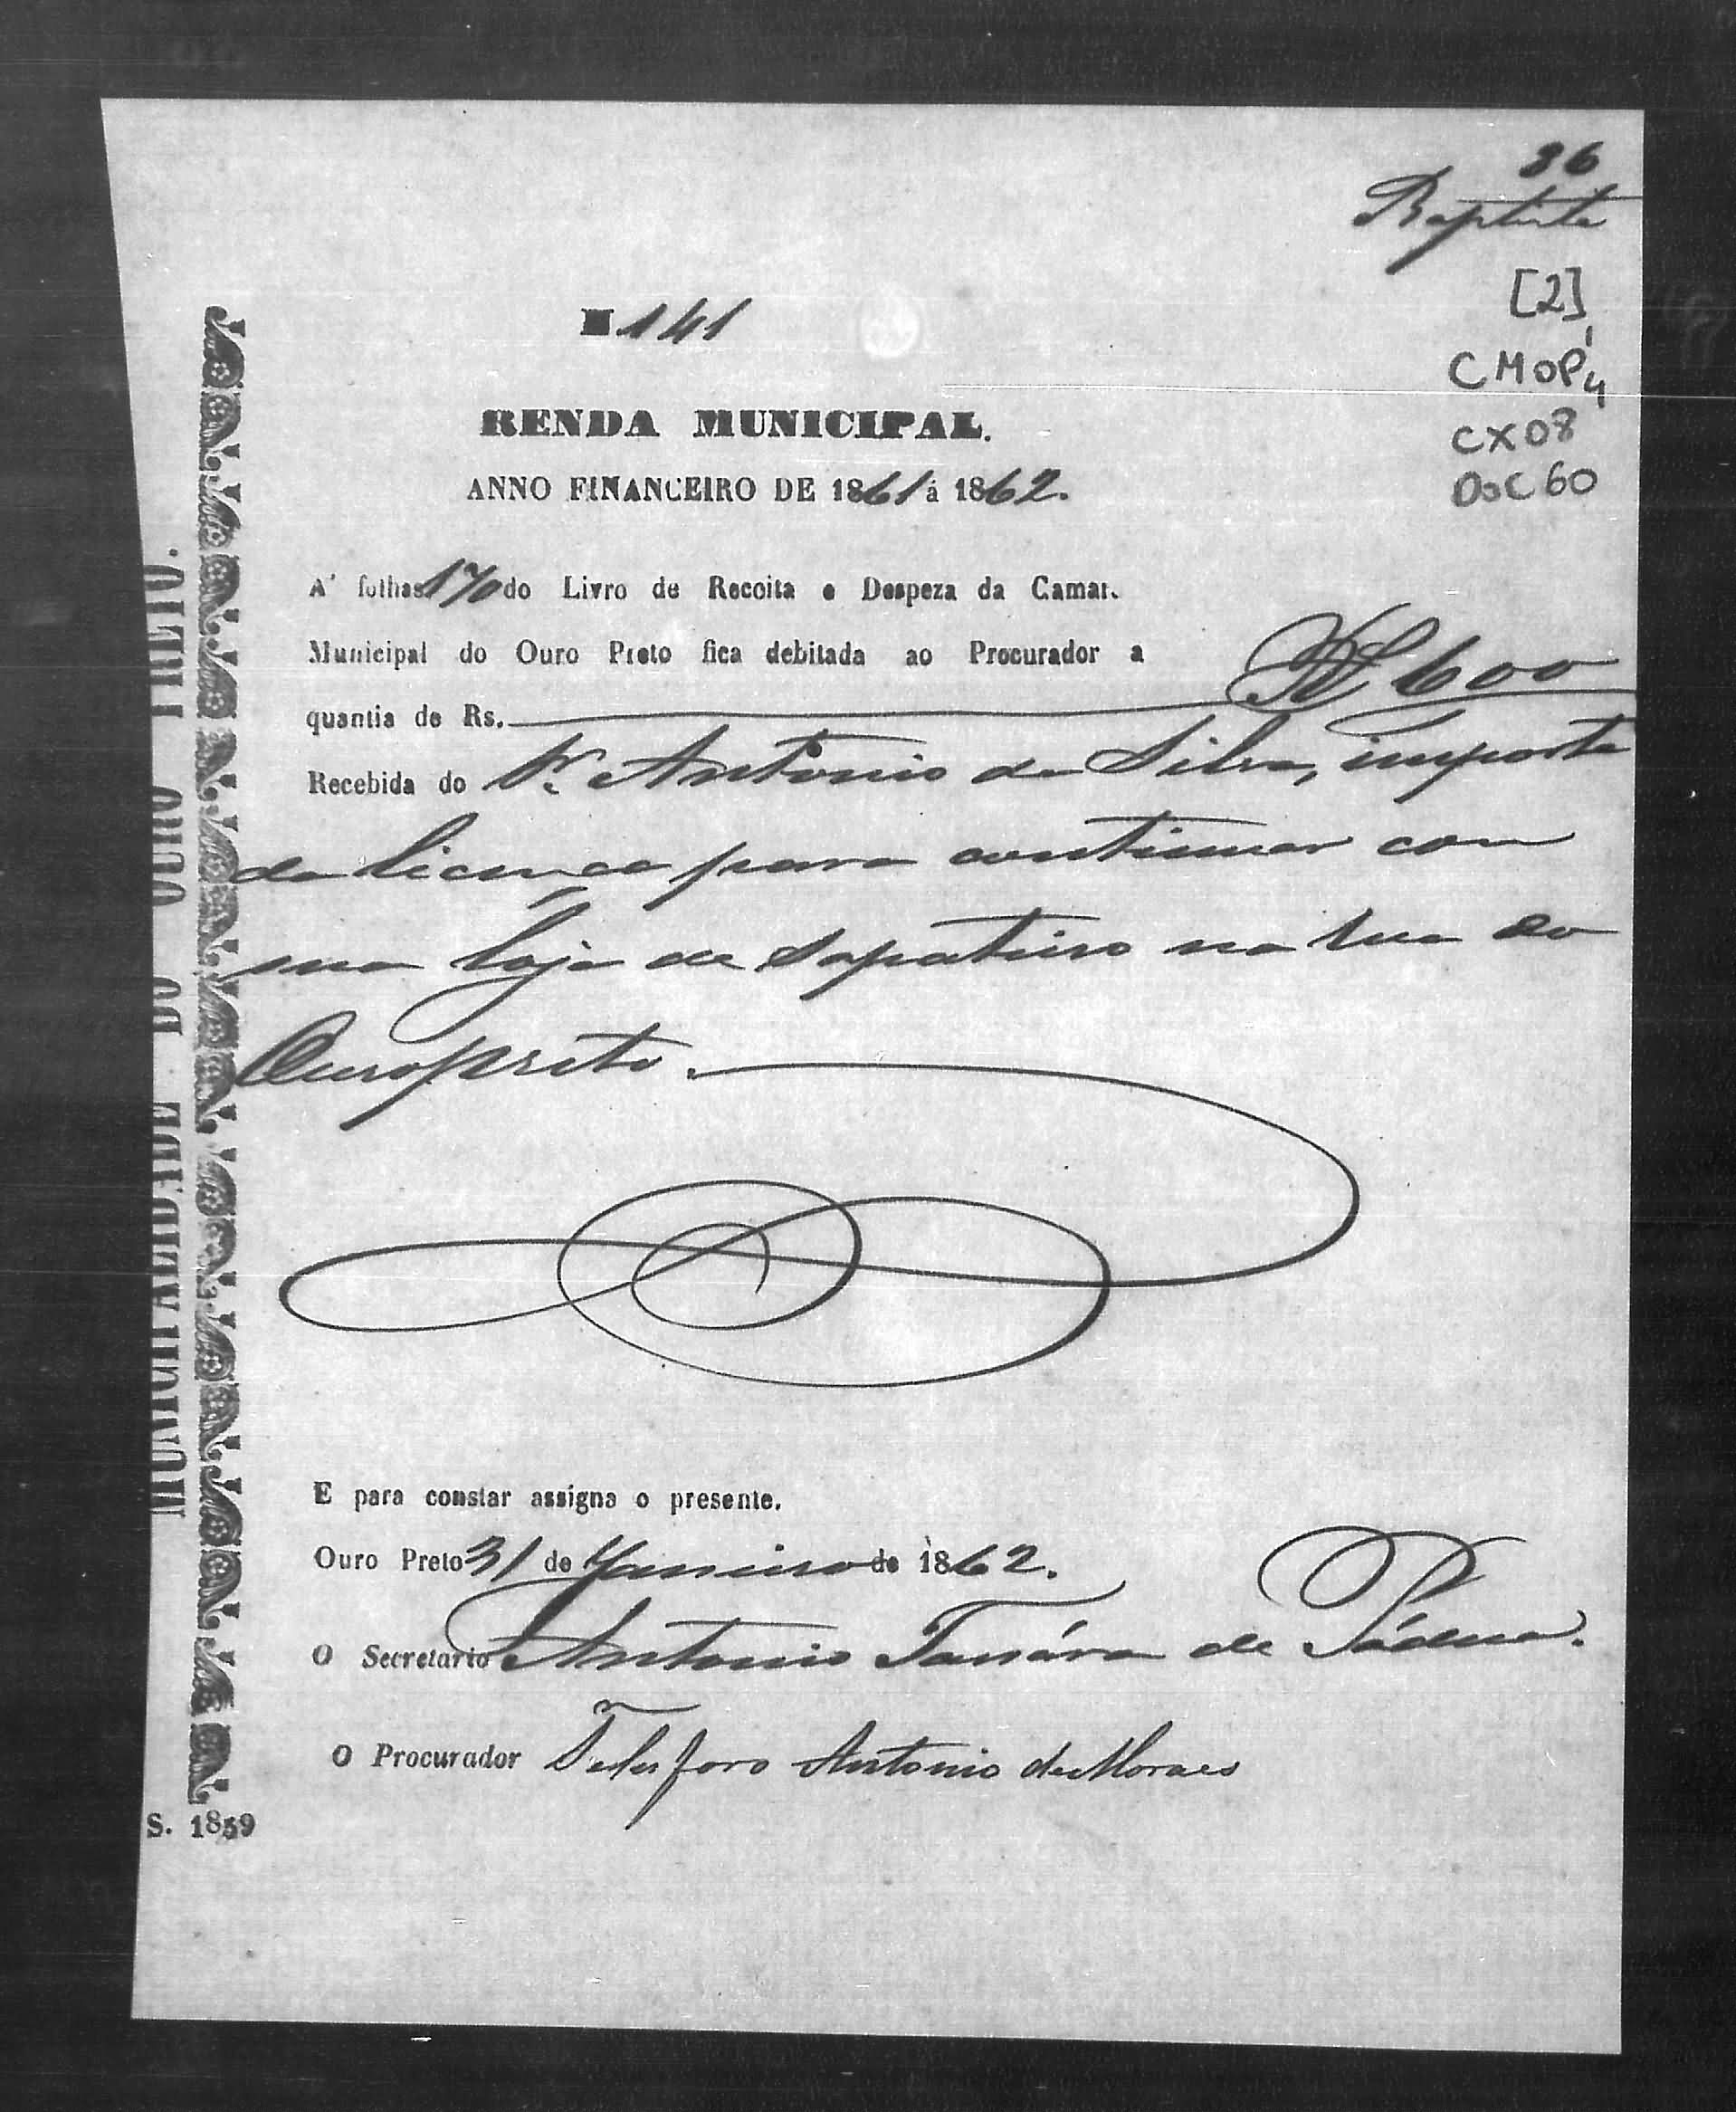 36
Baptista
[2]
CMOP 1,4
CX08
DOC 60
N 141
RENDA MUNICIPAL.
ANNO FINANCEIRO DE 1861 á 1862.
A' folhas 170 do Livro de Receita e Despeza da Camar.
Municipal do Ouro Preto fica debitada ao Procurador a
quantia de Rs. $600
Recebida do Sr. Antonio da Silva, importe
da licença para continuar com
sua loja de sapateiro na rua do
Ouropreto.
E para constar assigna o presente.
Ouro Preto 31 de Janeiro de 1862.
O Secretario Antonio de Pádua.
O Procurador Telesforo Antonio de Moraes
MUNICIPALIDADE DO OURO PRETO.
S. 1859